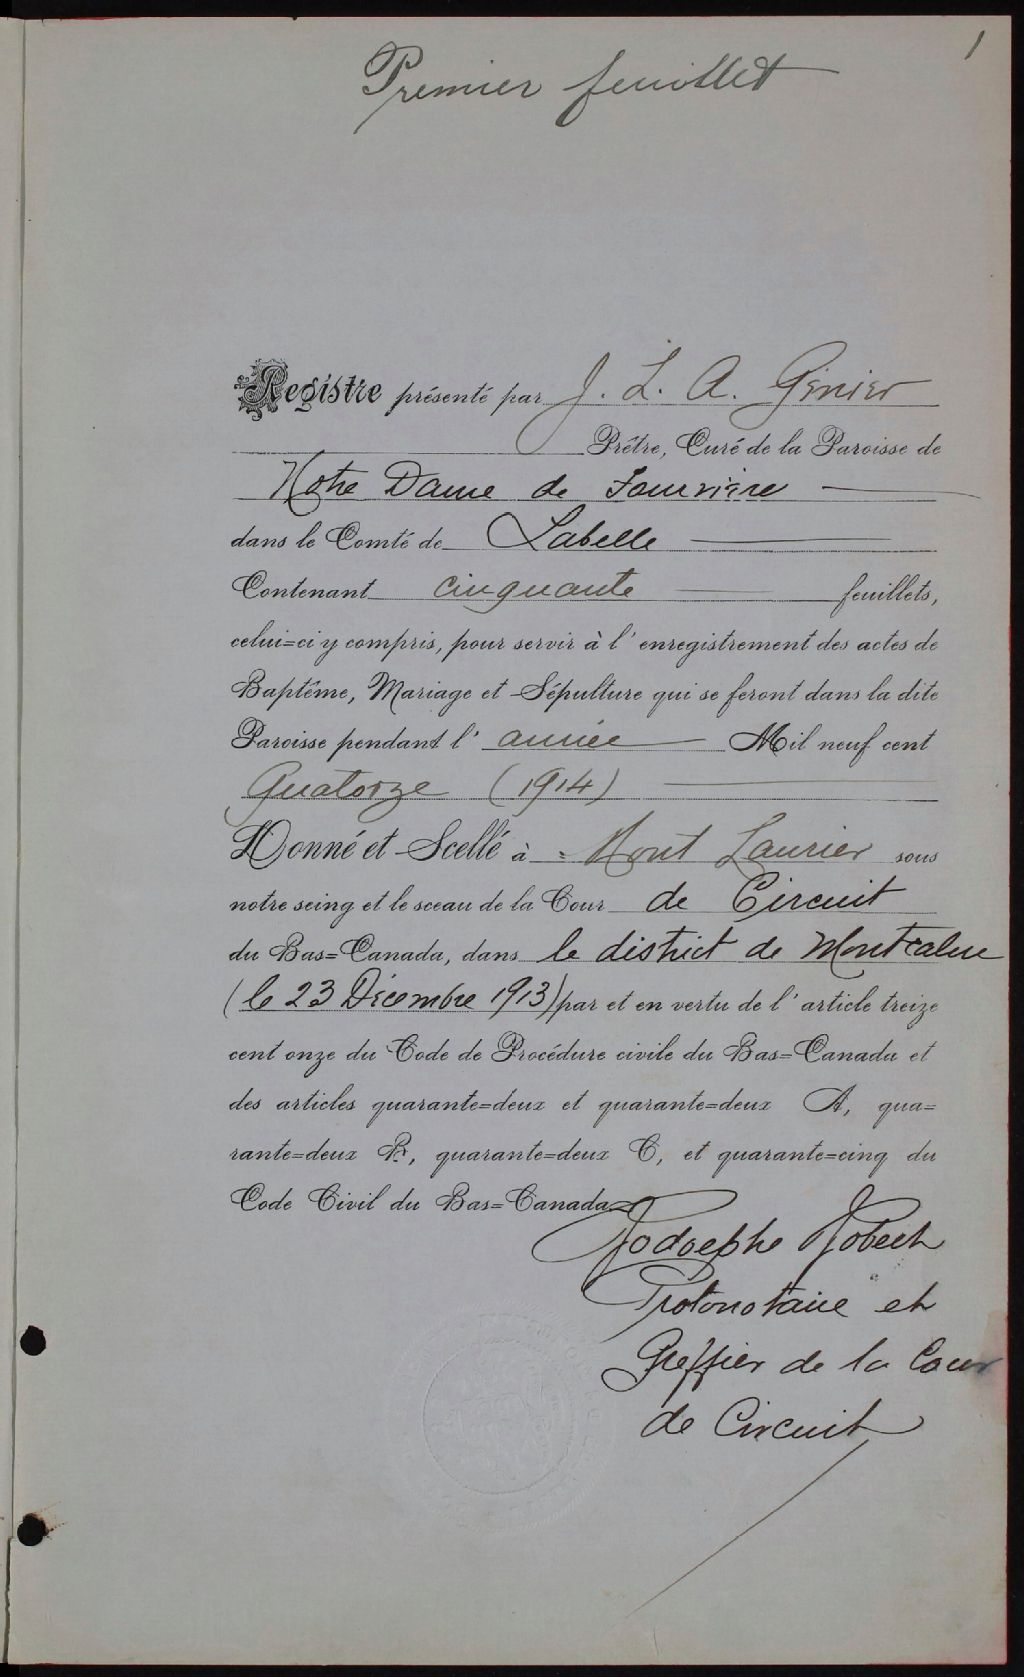 1
Premier feuillet
Registre présenté par J. L. A. Génier
Prêtre, Curé de la Paroisse de
Notre Dame de Fourvière
dans le Comté de Labelle
Contenant cinquante feuillets,
celui=ci y compris, pour servir à l'enregistrement des actes de
Baptême, Mariage et Sépulture qui se feront dans la dite
Paroisse pendant l'année Mil neuf cent
Quatorze (1914)
Donné et Scellé à Mont Laurier sous
notre seing et le sceau de la Cour de Circuit
du Bas=Canada, dans le district de Montcalm
(le 23 Décembre 1913) par et en vertu de l'article treize
cent onze du Code de Procédure civile du Bas=Canada et
des articles quarante=deux et quarante=deux A, qua=
rante=deux B, quarante=deux C, et quarante=cinq du
Code Civil du Bas=Canada
Rodolphe Robert
Protonotaire et
Greffier de la Cour
de Circuit